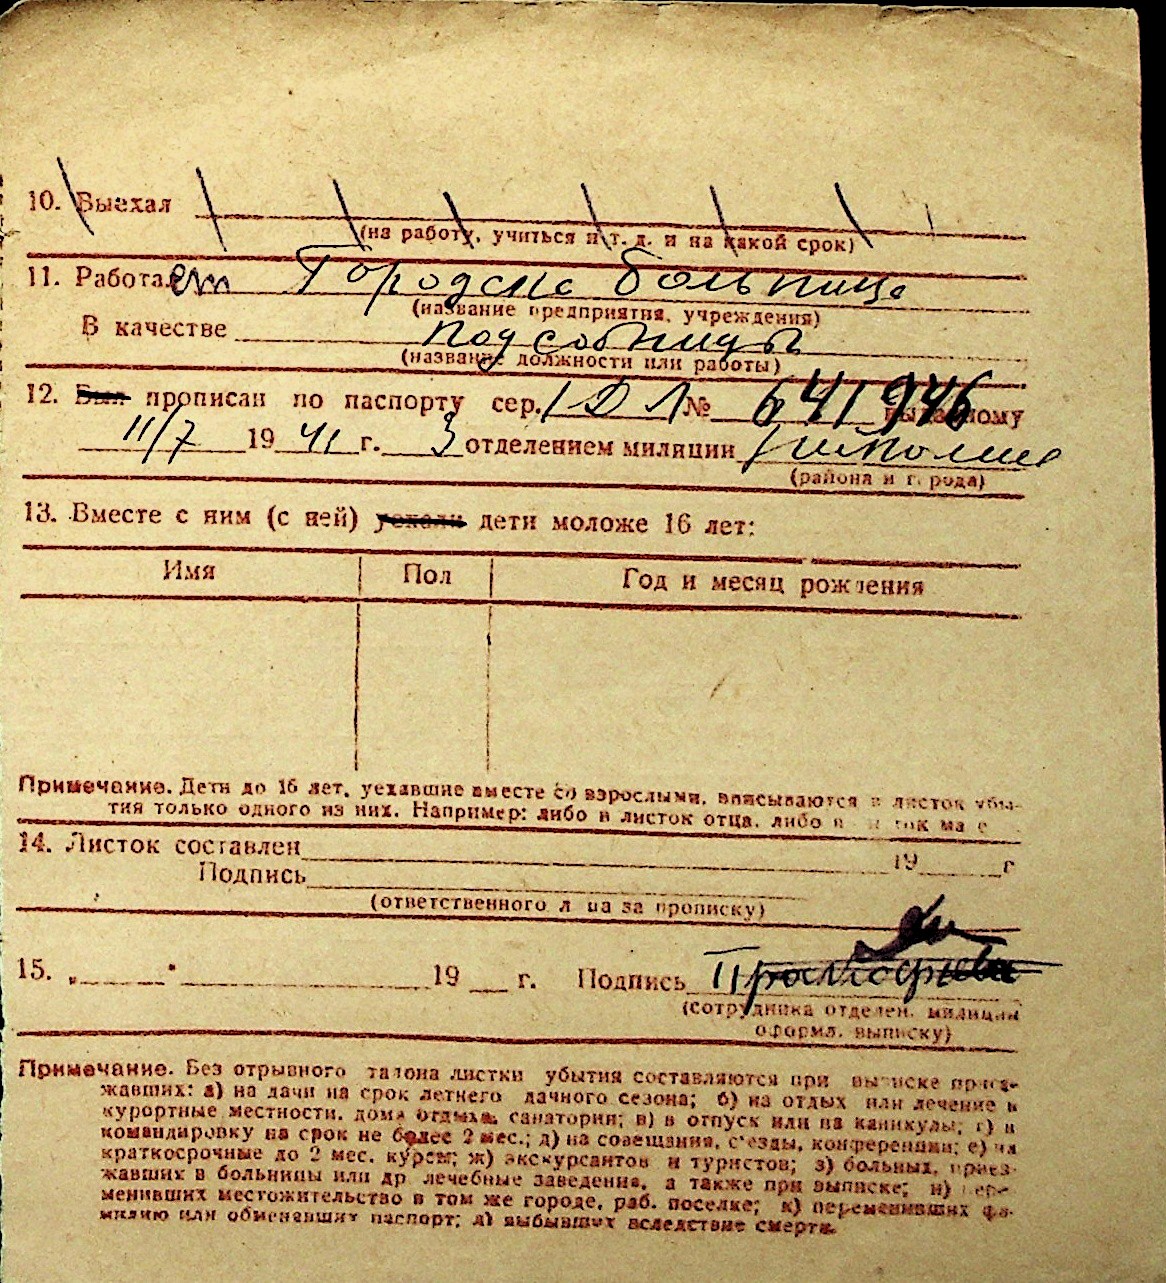 10. Выехал
(на работу, учиться и т. д. и на какой срок)
11. Работает Городска больница
(название предприятия, учреждения)
В качестве подсобницы
(название должности или работы)
12. Был прописан по паспорту сер. I ДЛ № 641946 выданному
11/7 1941 г. 3 отделением милиции
(района и города)
13. Вместе с ним (с ней) уехали дети моложе 16 лет:
Имя Пол Год и месяц рождения
Примечание. Дети до 16 лет, уехавшие вместе со взрослыми, вписываются в листок убы-
тия только одного из них. Например: либо в листок отца, либо в
14. Листок составлен 19 г
Подпись
(ответственного лица за прописку)
15. „ “ 19 г. Подпись
(сотрудника отделен. милиции
оформл. выписку)
Примечание. Без отрывного талона листки убытия составляются при выписке приез-
жавших: а) на дачи на срок летнего дачного сезона; б) на отдых или лечение в
курортные местности, дома отдыха, санатории; в) в отпуск или на каникулы; г) в
командировку на срок не более 2 мес.; д) на совещания, съезды, конференции; е) на
краткосрочные до 2 мес. курсы; ж) экскурсантов и туристов; з) больных, приез-
жавших в больницы или др лечебные заведения, а также при выписке; и) пере-
менивших местожительство в том же городе, раб. поселке; к) переменивших фа-
милию или обменявших паспорт; л) выбывших вследствие смерти.